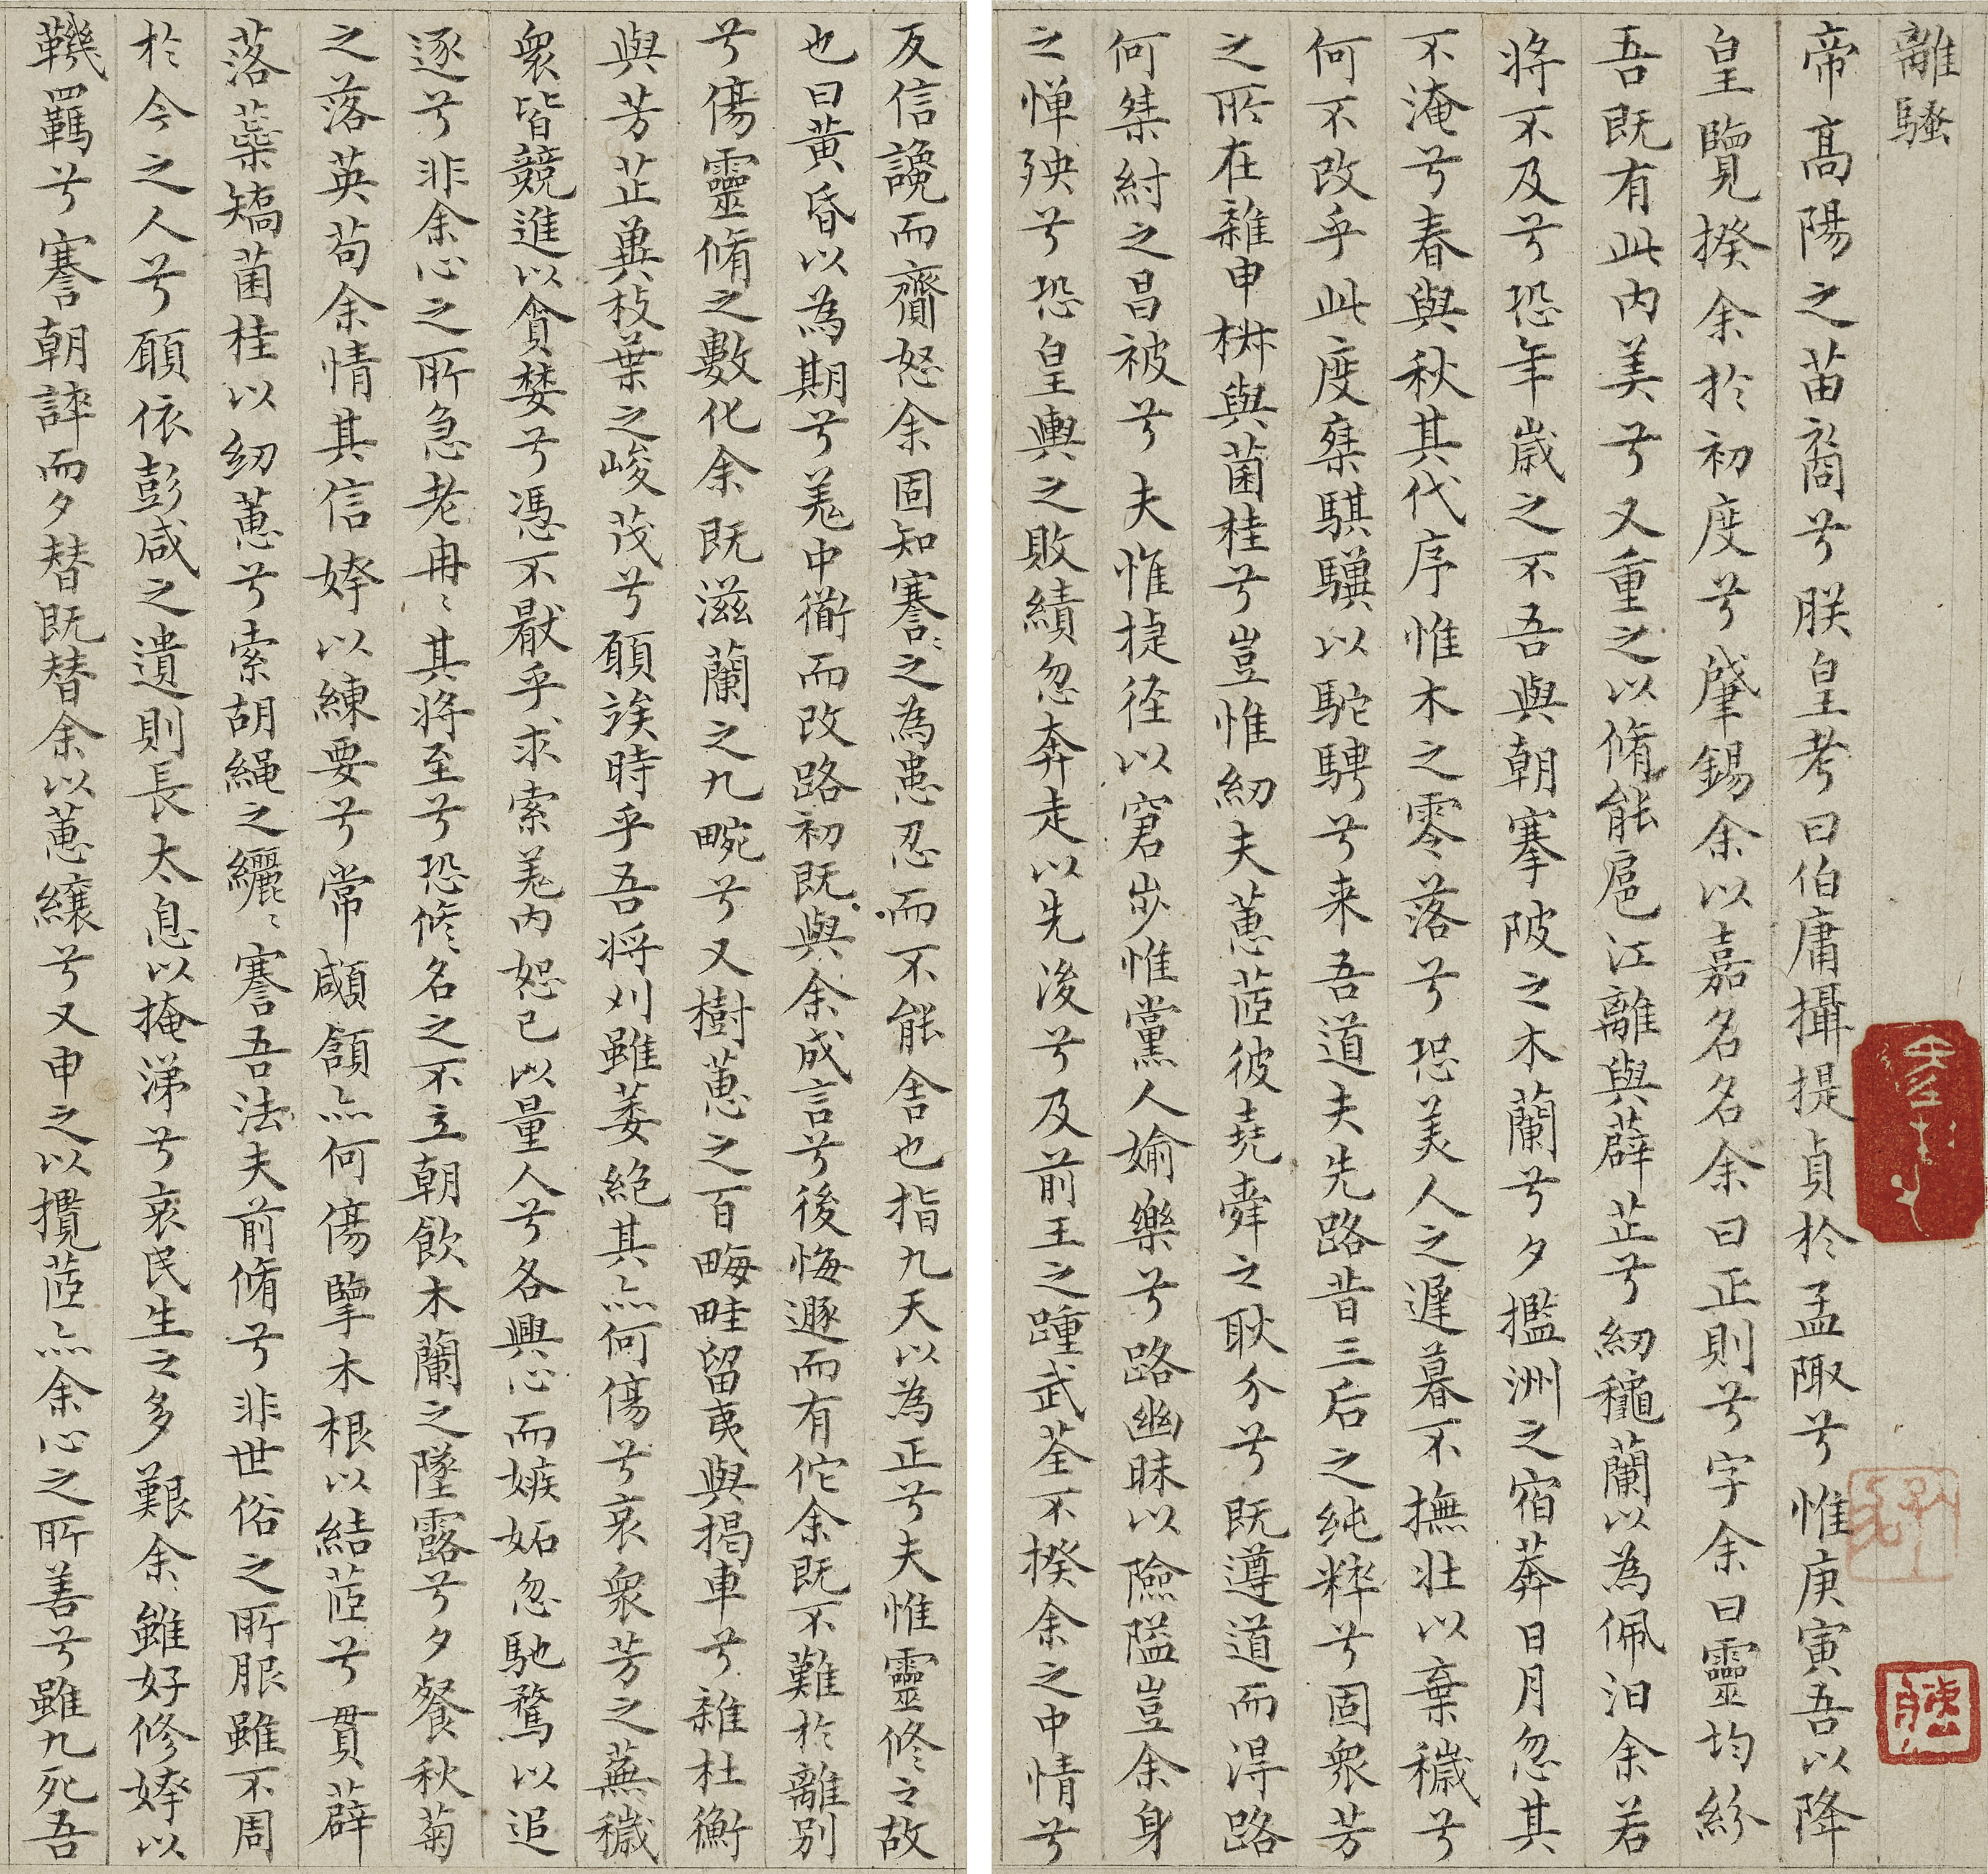 離騷
帝高陽之苗裔兮朕皇考曰伯庸攝提貞於孟陬兮惟庚寅吾以降
皇覽揆余於初度兮肈錫余以嘉名名余曰正則兮字余曰靈均紛
吾既有此内美兮又重之以脩能扈江離與薜芷兮紉秋蘭以為佩汩余若
將不及兮恐年歲之不吾與朝搴陂之木蘭兮夕擥洲之宿莽日月忽其
不淹兮春與秋其代序惟木之零落兮恐美人之遲暮不撫壯以棄穢兮
何不改乎此度椉騏驥以駝騁兮来吾道夫先路昔三后之純粹兮固衆芳
之所在雜申椒與菌桂兮豈惟紉夫蕙茝彼堯舜之耿介兮既遵道而得路
何桀紂之昌被兮夫惟捷徑以窘步惟黨人婾樂兮路幽昧以險隘豈余身
之憚殃兮恐皇輿之敗績忽奔走以先後兮及前王之踵武荃不揆余之中情兮
反信讒而齌怒余固知謇〻之為患忍而不能舍也指九天以為正兮夫惟靈修之故
也曰黄昏以為期兮羌中衟而改路初既與余成言兮後悔遯而有佗余既不難於離别
兮傷靈脩之數化余既滋蘭之九畹兮又樹蕙之百畮畦留夷與揭車兮雜杜衡
與芳芷兾枝葉之峻茂兮願竢時乎吾將刈雖萎絶其亦何傷兮哀衆芳之蕪穢
衆皆競進以貪婪兮憑不猒乎求索羌内恕己以量人兮各興心而嫉妬忽馳騖以追
逐兮非余心之所急老冉〻其將至兮恐修名之不立朝飲木蘭之墜露兮夕餐秋菊
之落英苟余情其信姱以練要兮常顑頷亦何傷擥木根以結茝兮貫薜
落蘂矯菌桂以紉蕙兮索胡繩之纚〻謇吾法夫前脩兮非世俗之所服雖不周
於今之人兮願依彭咸之遺則長太息以掩涕兮哀民生之多艱余雖好修姱以
鞿羈兮謇朝誶而夕替既替余以蕙纕兮又申之以攬茝亦余心之所善兮雖九死吾